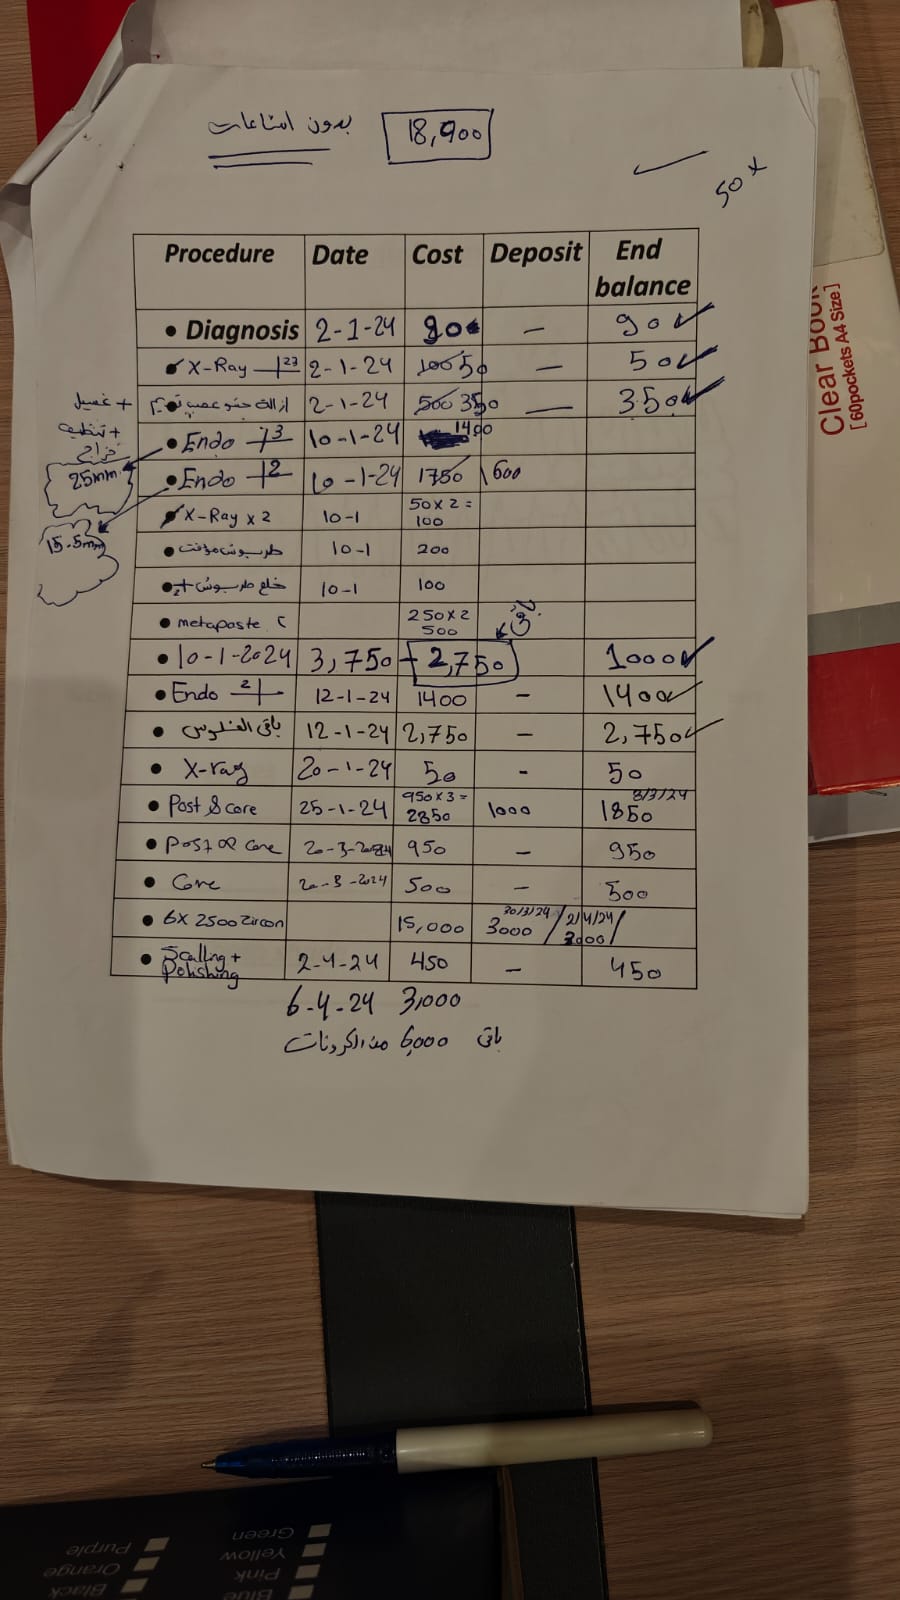 بدون امتاعات 18,900
50 +
Procedure Date Cost Deposit End balance
• Diagnosis 2-1-24 90 — 90
• X-Ray 23 2-1-24 100 50 — 50
• ازالة حشو عصب 2-1-24 500 350 — 350
+ غسيل
+ تنظيف
خراج
• Endo 3 10-1-24 1400
25mm
• Endo 2 10-1-24 1750 1600
• X-Ray x 2 10-1 50 x 2 = 100
15.5mm
• طربوش مؤقت 10-1 200
• خلع طربوش 2 10-1 100
• metapaste 250x2 500
باقي
• 10-1-2024 3,750 - 2,750 1000
• Endo 2 12-1-24 1400 - 1400
• باقى الفلوس 12-1-24 2,750 - 2,750
• X-ray 20-1-24 50 - 50
• Post & core 25-1-24 950 x 3 = 2850 1000 1850 8/3/24
• Post & Core 20-3-2024 950 - 950
• Core 20-3-2024 500 - 500
• 6x 2500 zircon 15,000 30/3/24 3000 / 2/4/24 3000 /
• Scalling + Polishing 2-4-24 450 - 450
6-4-24 3,000
باقى 6,000 من الكرونات
Clear Book
[60pockets A4 Size]
Green
Yellow
Pink
Blue
Purple
Orange
Black